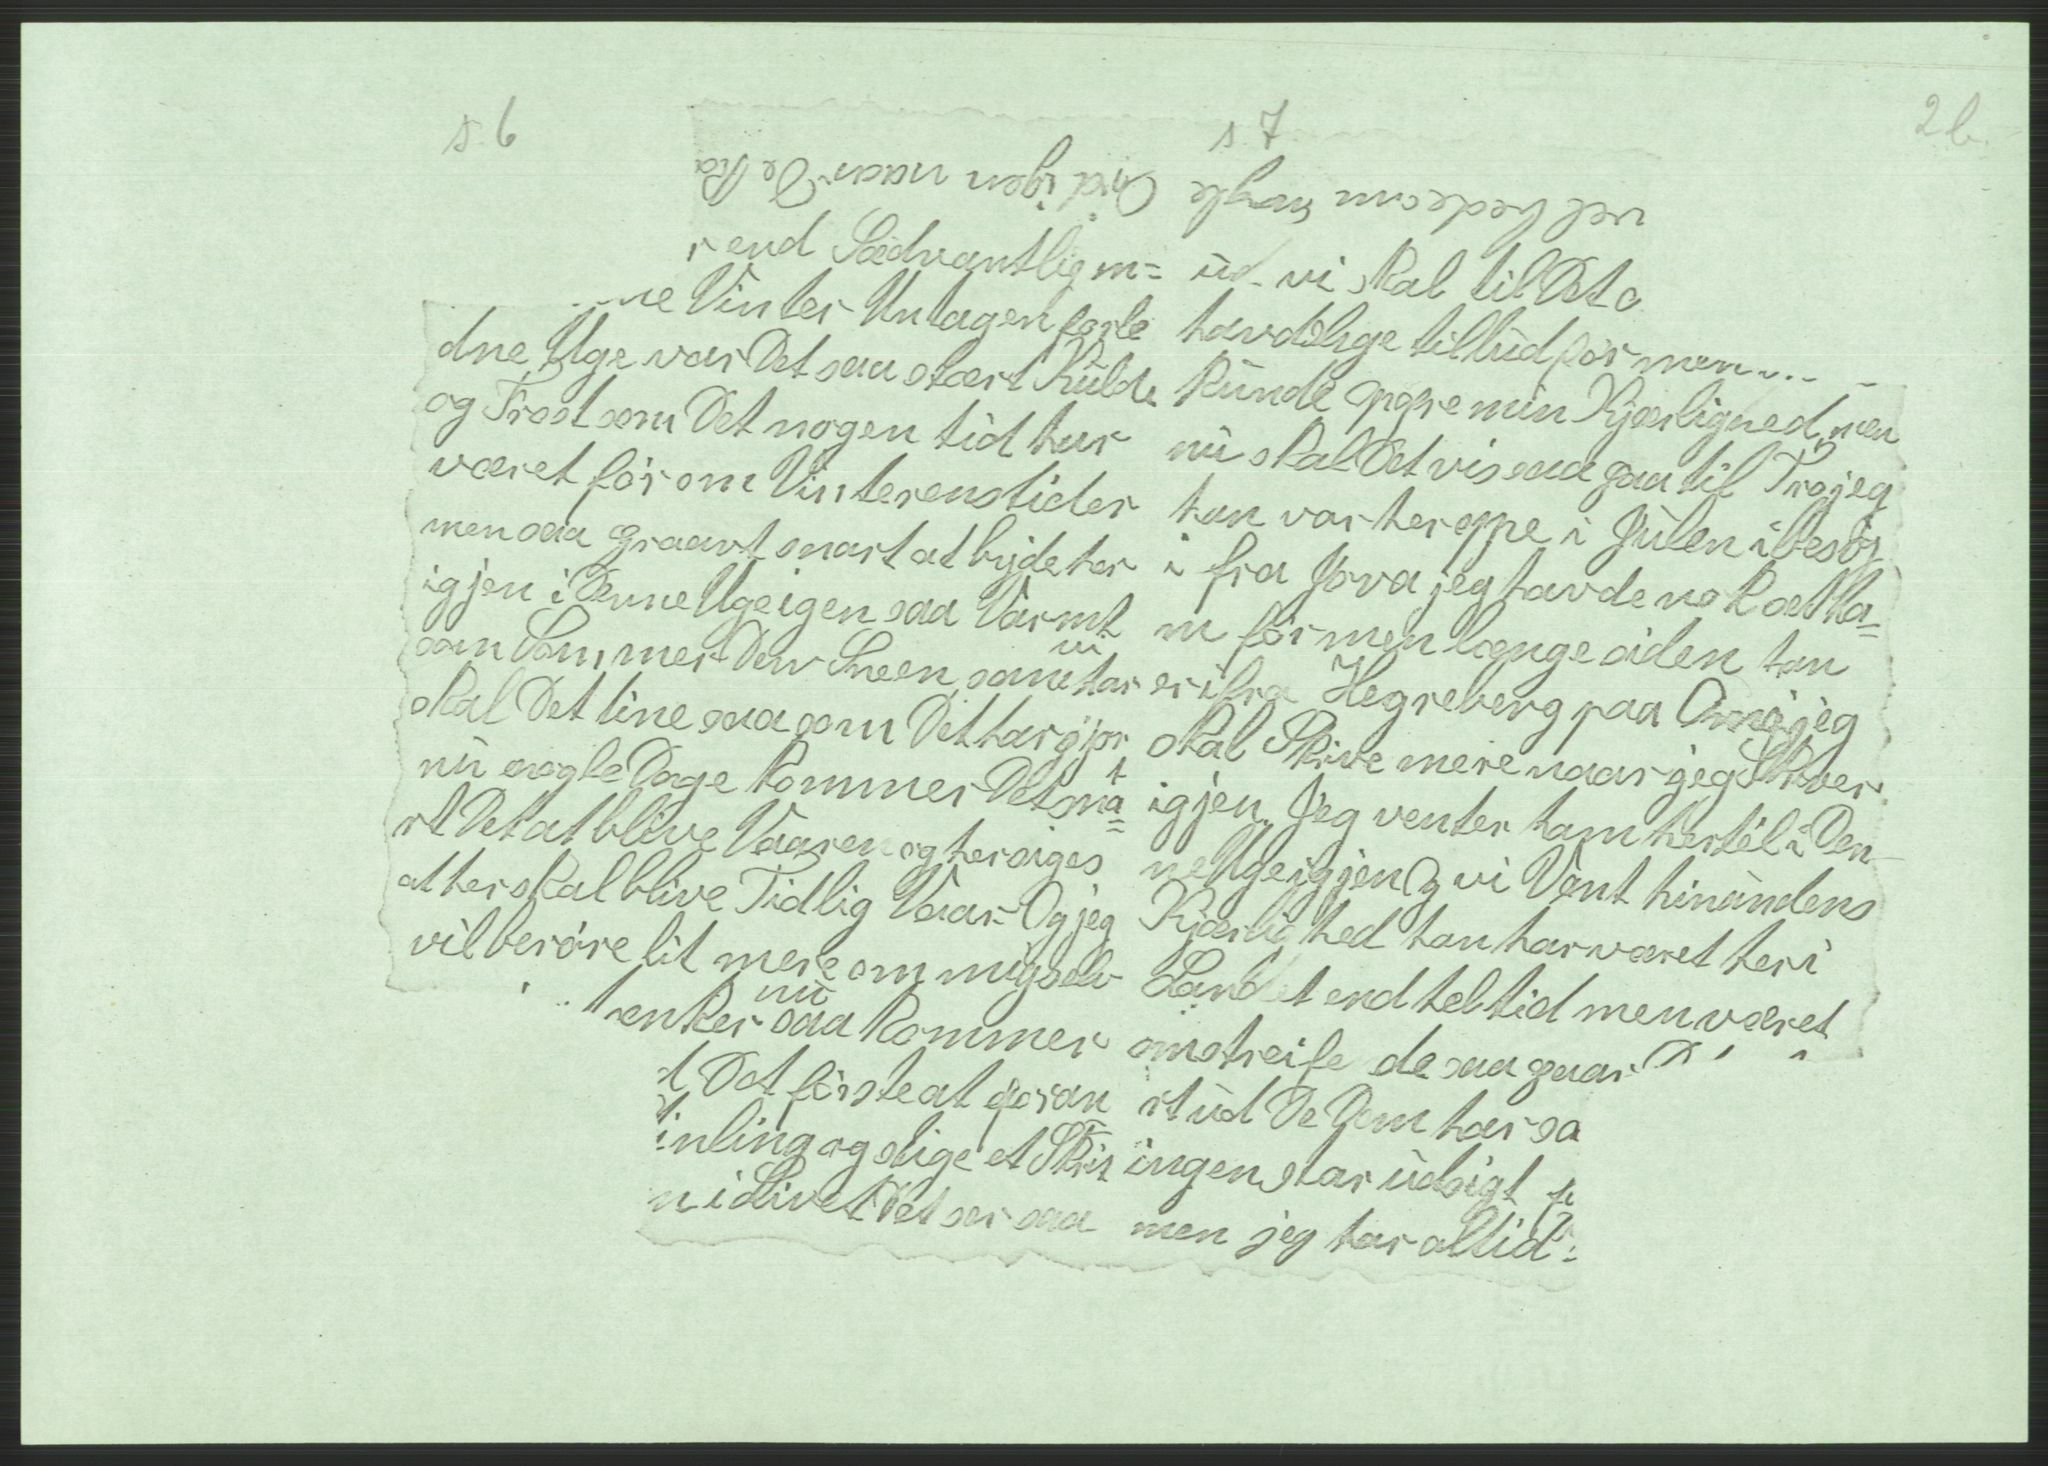 2b.
s. 6
r end Sædvantlig m=
ne Vinter Untagen forle
dne Uge var Det saa stært Kulde
og Frost som Det nogen tid har
været før om Vinterenstider
men saa graavt snart at byde her
igjen i Denne Uge igen saa Varmt
som Sommer Dew Sneen som vi har
skal Det tine saa som Det har gjor
nu nogle Dage Kommer Det sna=
rt Det at blive Vaaren og her siges
at her skal blive Tidlig Vaar Og jeg
vil berøre lit mere om mig selv
tenker nu saa Kommer
t Det første at gør an
inling og slige et Skrit
n i Livet Det ser saa
s 7
vel hedeom nogle Ord igen naar De Ra
ud vi skal til Det a
havdelige tillud for men
Kunde opgre min Kjærlighed, men
nu skal Det vis saa gaa til Tro jeg
han var her oppe i Julen i besøg
i fra Jova jeg havde nok set ha=
m før men længe siden han
er ifra Hegreberg paa Omø jeg
skal Skrive mere naar jeg Skrver
igjen. Jeg venter ham hertil i Den
ne Uge igjen Og vi Vant hinandens
Kjærlighed han har været her i
Landet end hel tid men været
omstreife de saa gaar
rt ud De Dem har sa
ingen star udsigt
men jeg har altid